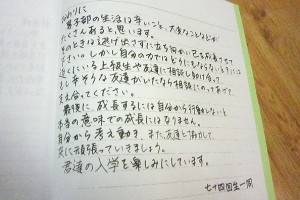 おわりに
男子部の生活は辛いこと、大変なことなどが
たくさんあると思います。
そのときは逃げ出さずに立ち向かい己を成長させて
下さい。しかし自分の力ではどうにもならないときには
近くにいる上級生や友達に相談し助け合って
もし辛そうな友達がいたなら相談にのってあげて
支え合ってください。
最後に、成長するには自分から行動しないと
本当の意味での成長にはなりません。
自分から考え動き、また、友達と協力して
共に頑張っていきましょう。
君達の入学を楽しみにしています。
七十四回生一同